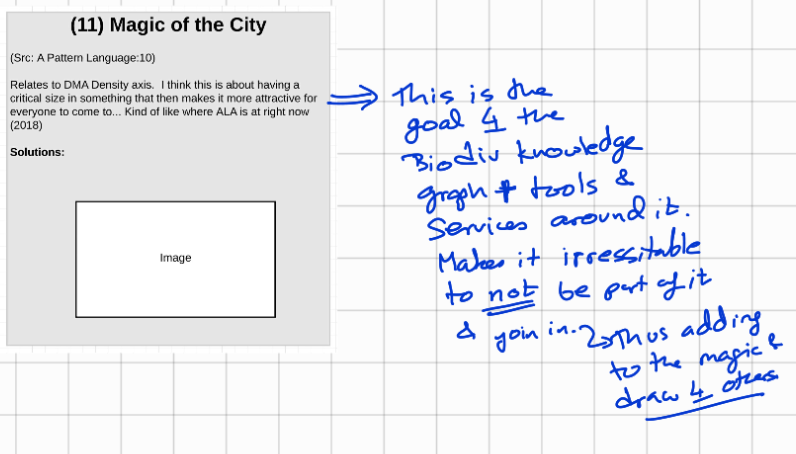 (11) Magic of the City
(Src: A Pattern Language:10)
Relates to DMA Density axis. I think this is about having a
critical size in something that then makes it more attractive for
everyone to come to... Kind of like where ALA is at right now
(2018)
Solutions:
Image
This is the
goal 4 the
Biodiv knowledge
graph + tools &
Services around it.
Makes it irressitable
to not be part of it
& join in.
Thus adding
to the magic &
draw 4 others